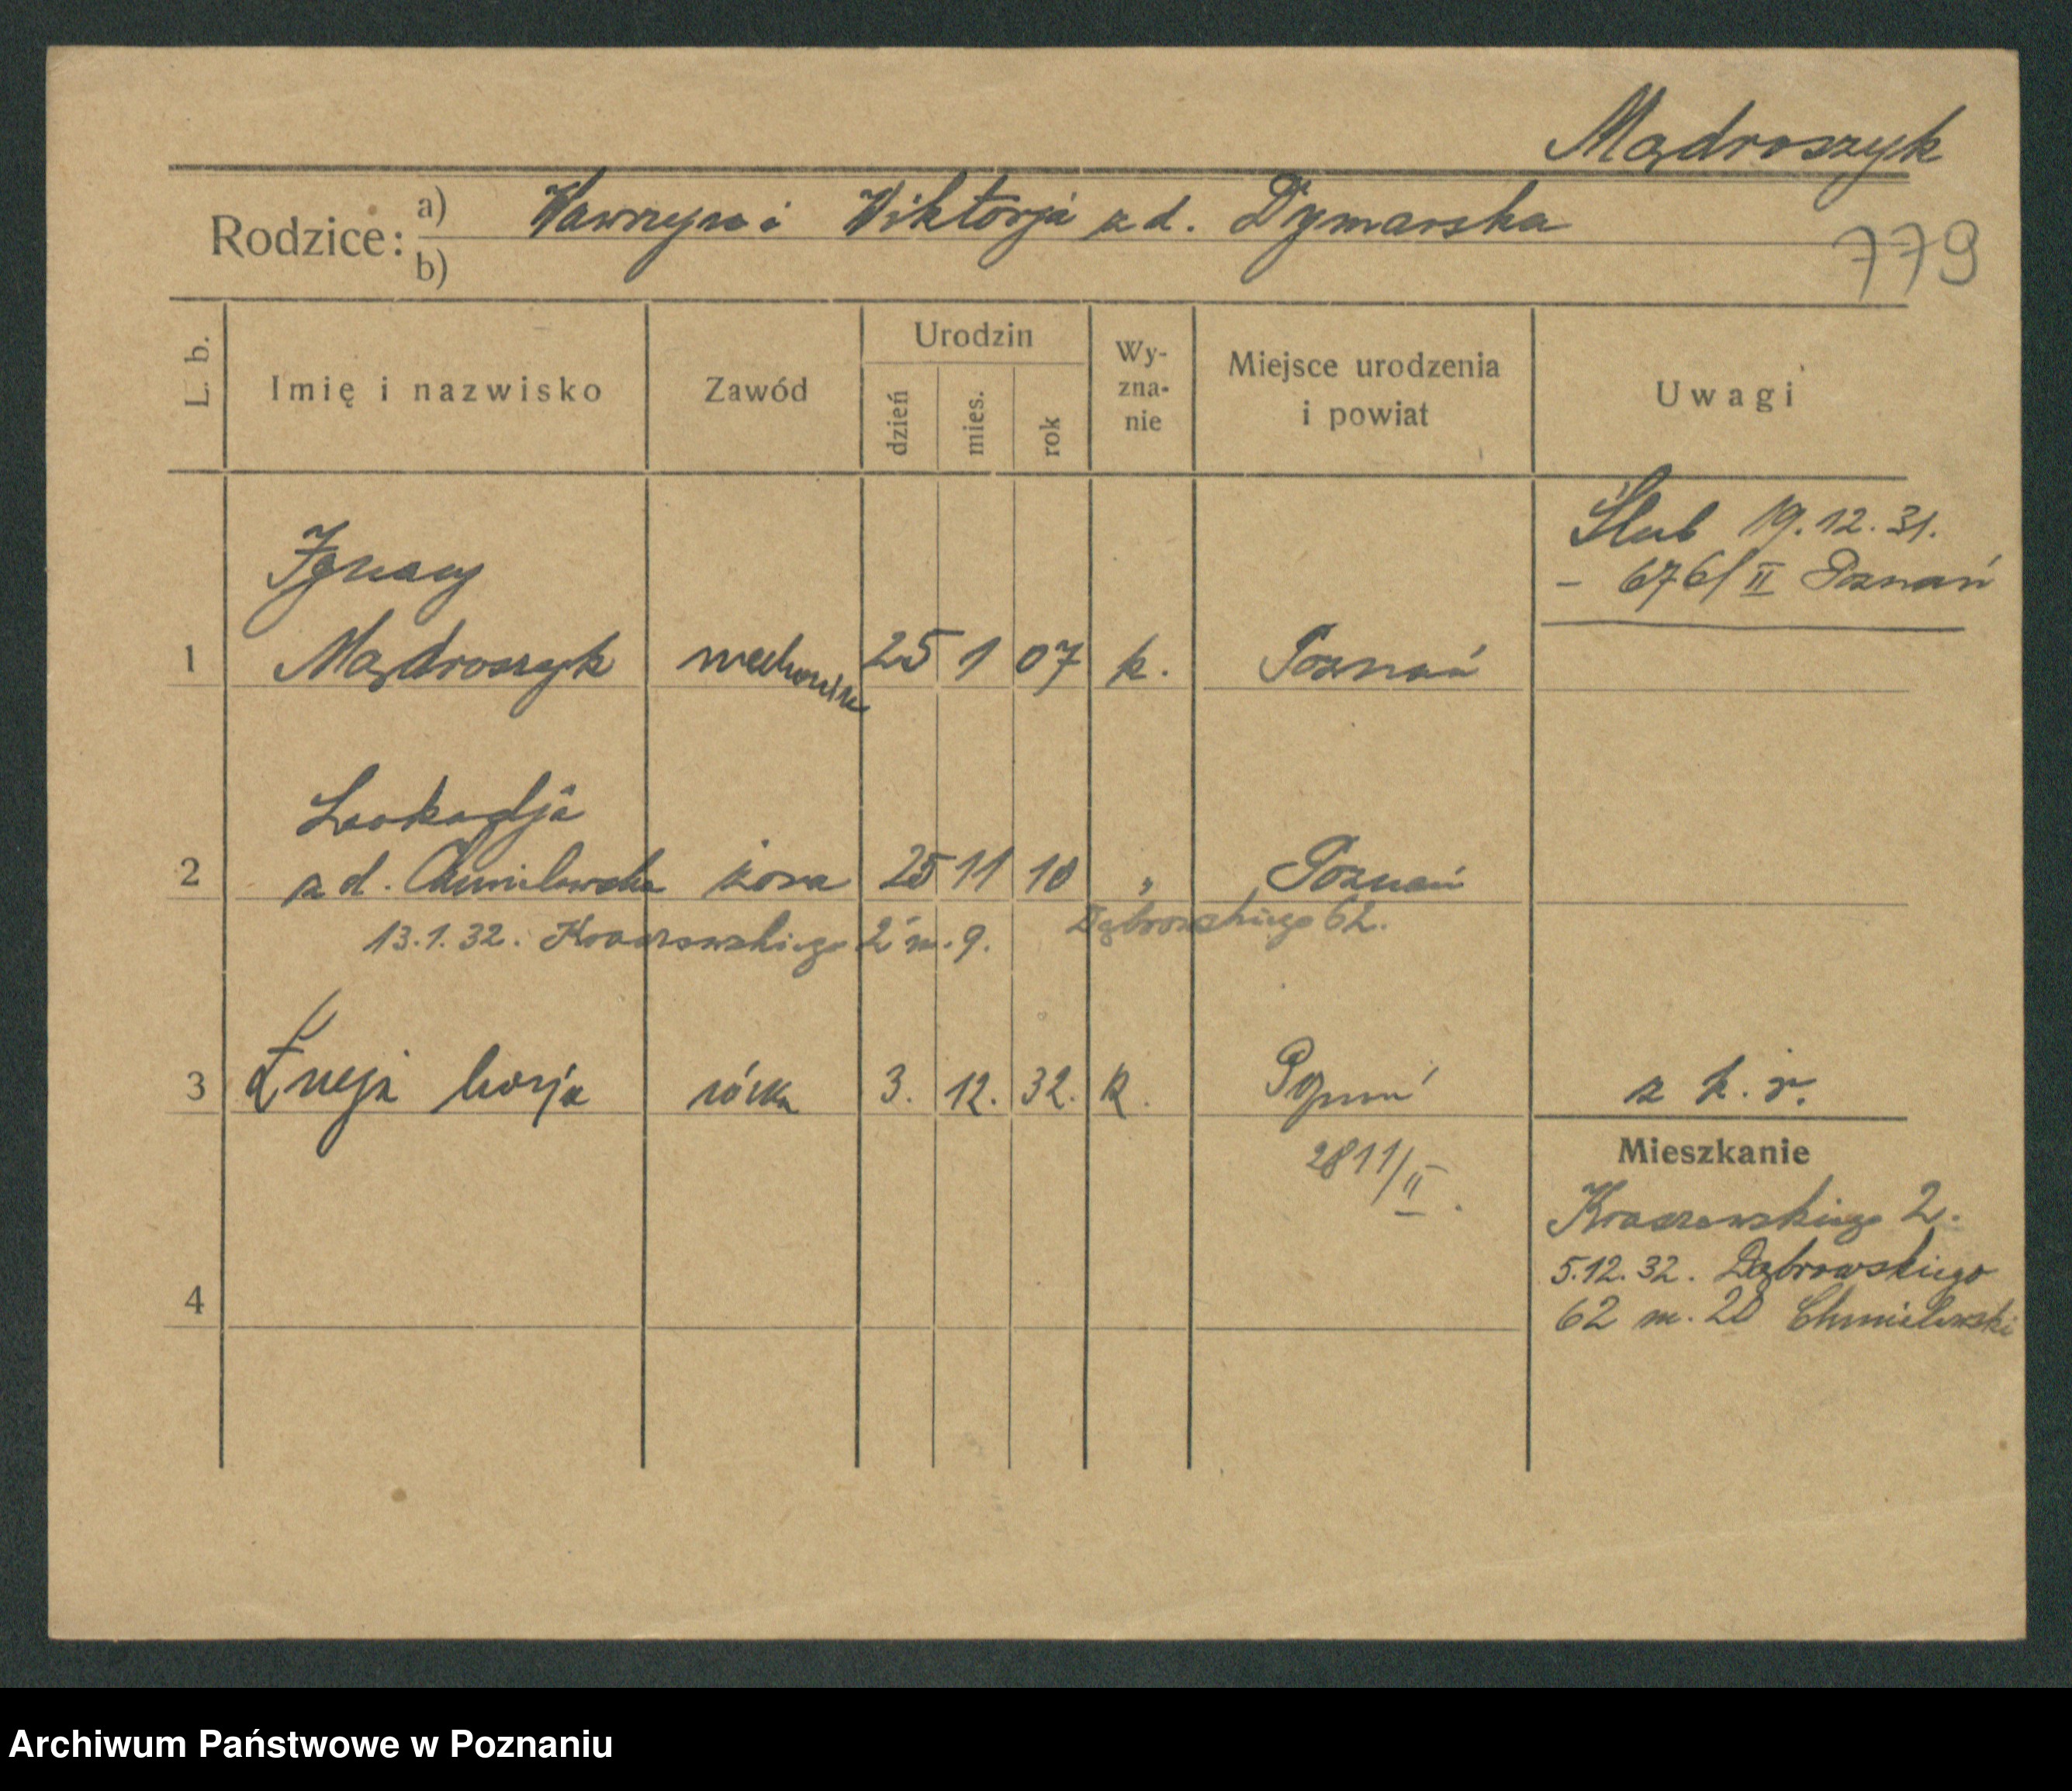 Mądroszyk
Rodzice: a) Wawrzyn i Wiktorja z d. Dymarska
b)
779
L. b.
Imię i nazwisko
Zawód
Urodzin
dzień
mies.
rok
Wy-
zna-
nie
Miejsce urodzenia
i powiat
Uwagi
Ślub 19.12.31.
– 676/II Poznań
Ignacy
1 Mądroszyk mechanik 25 1 07 k. Poznań
Leokadja
2 z d. Chmielewska żona 25 11 10 " Poznań
13.1.32. Kraszewskiego 2 m. 9. Dąbrowskiego 62.
3 Łucja Marja córka 3. 12. 32. k. Poznań z k. r.
2811/II.
Mieszkanie
Kraszewskiego 2.
5.12.32. Dąbrowskiego
62 m. 20 Chmielewski
4
Archiwum Państwowe w Poznaniu